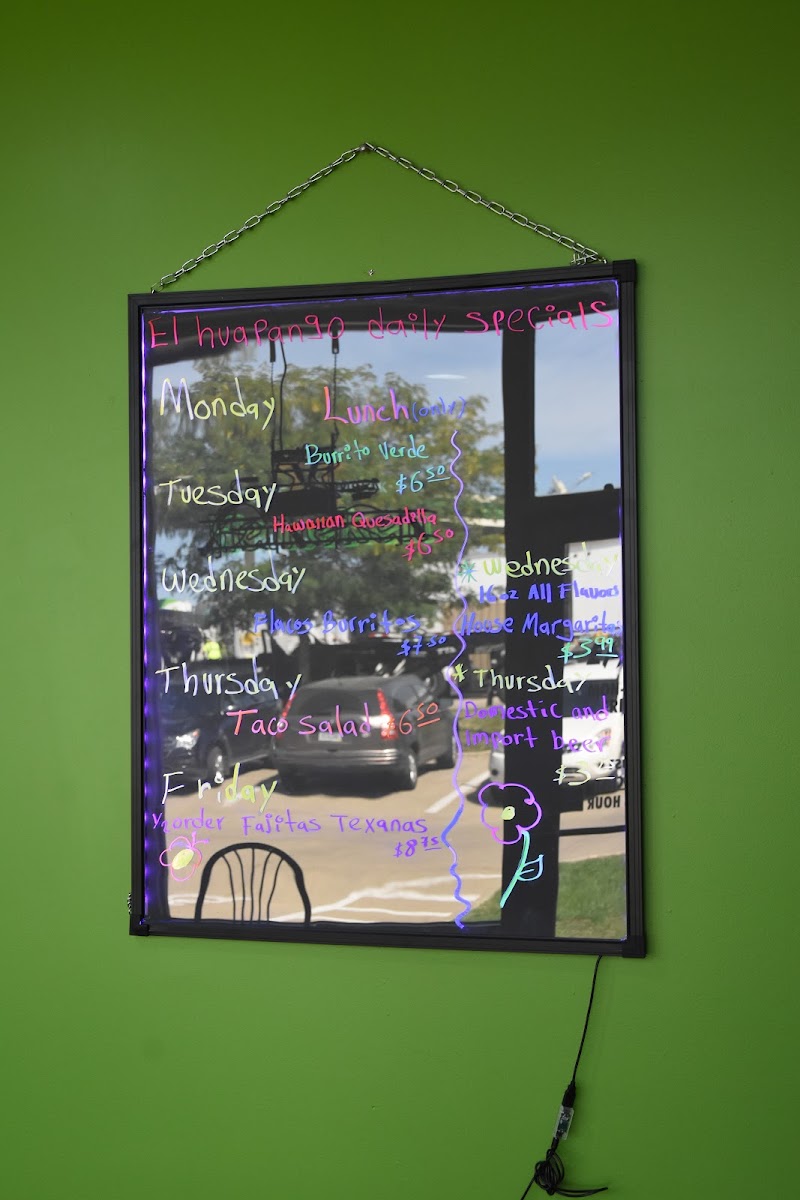 El huapango daily specials
Monday Lunch (only)
Burrito Verde
$6.50
Tuesday
Hawaiian Quesadilla
$6.50
Wednesday
Flacos Burritos
$7.50
Thursday
Taco Salad $6.50
Friday
½ order Fajitas Texanas
$8.75
* Wednesday
16oz All Flavors
House Margaritas
$3.99
* Thursday
Domestic and
import beer
HOUR